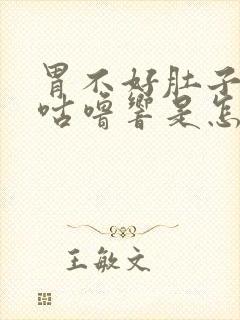 胃不好肚子
咕噜响是怎
王敏文